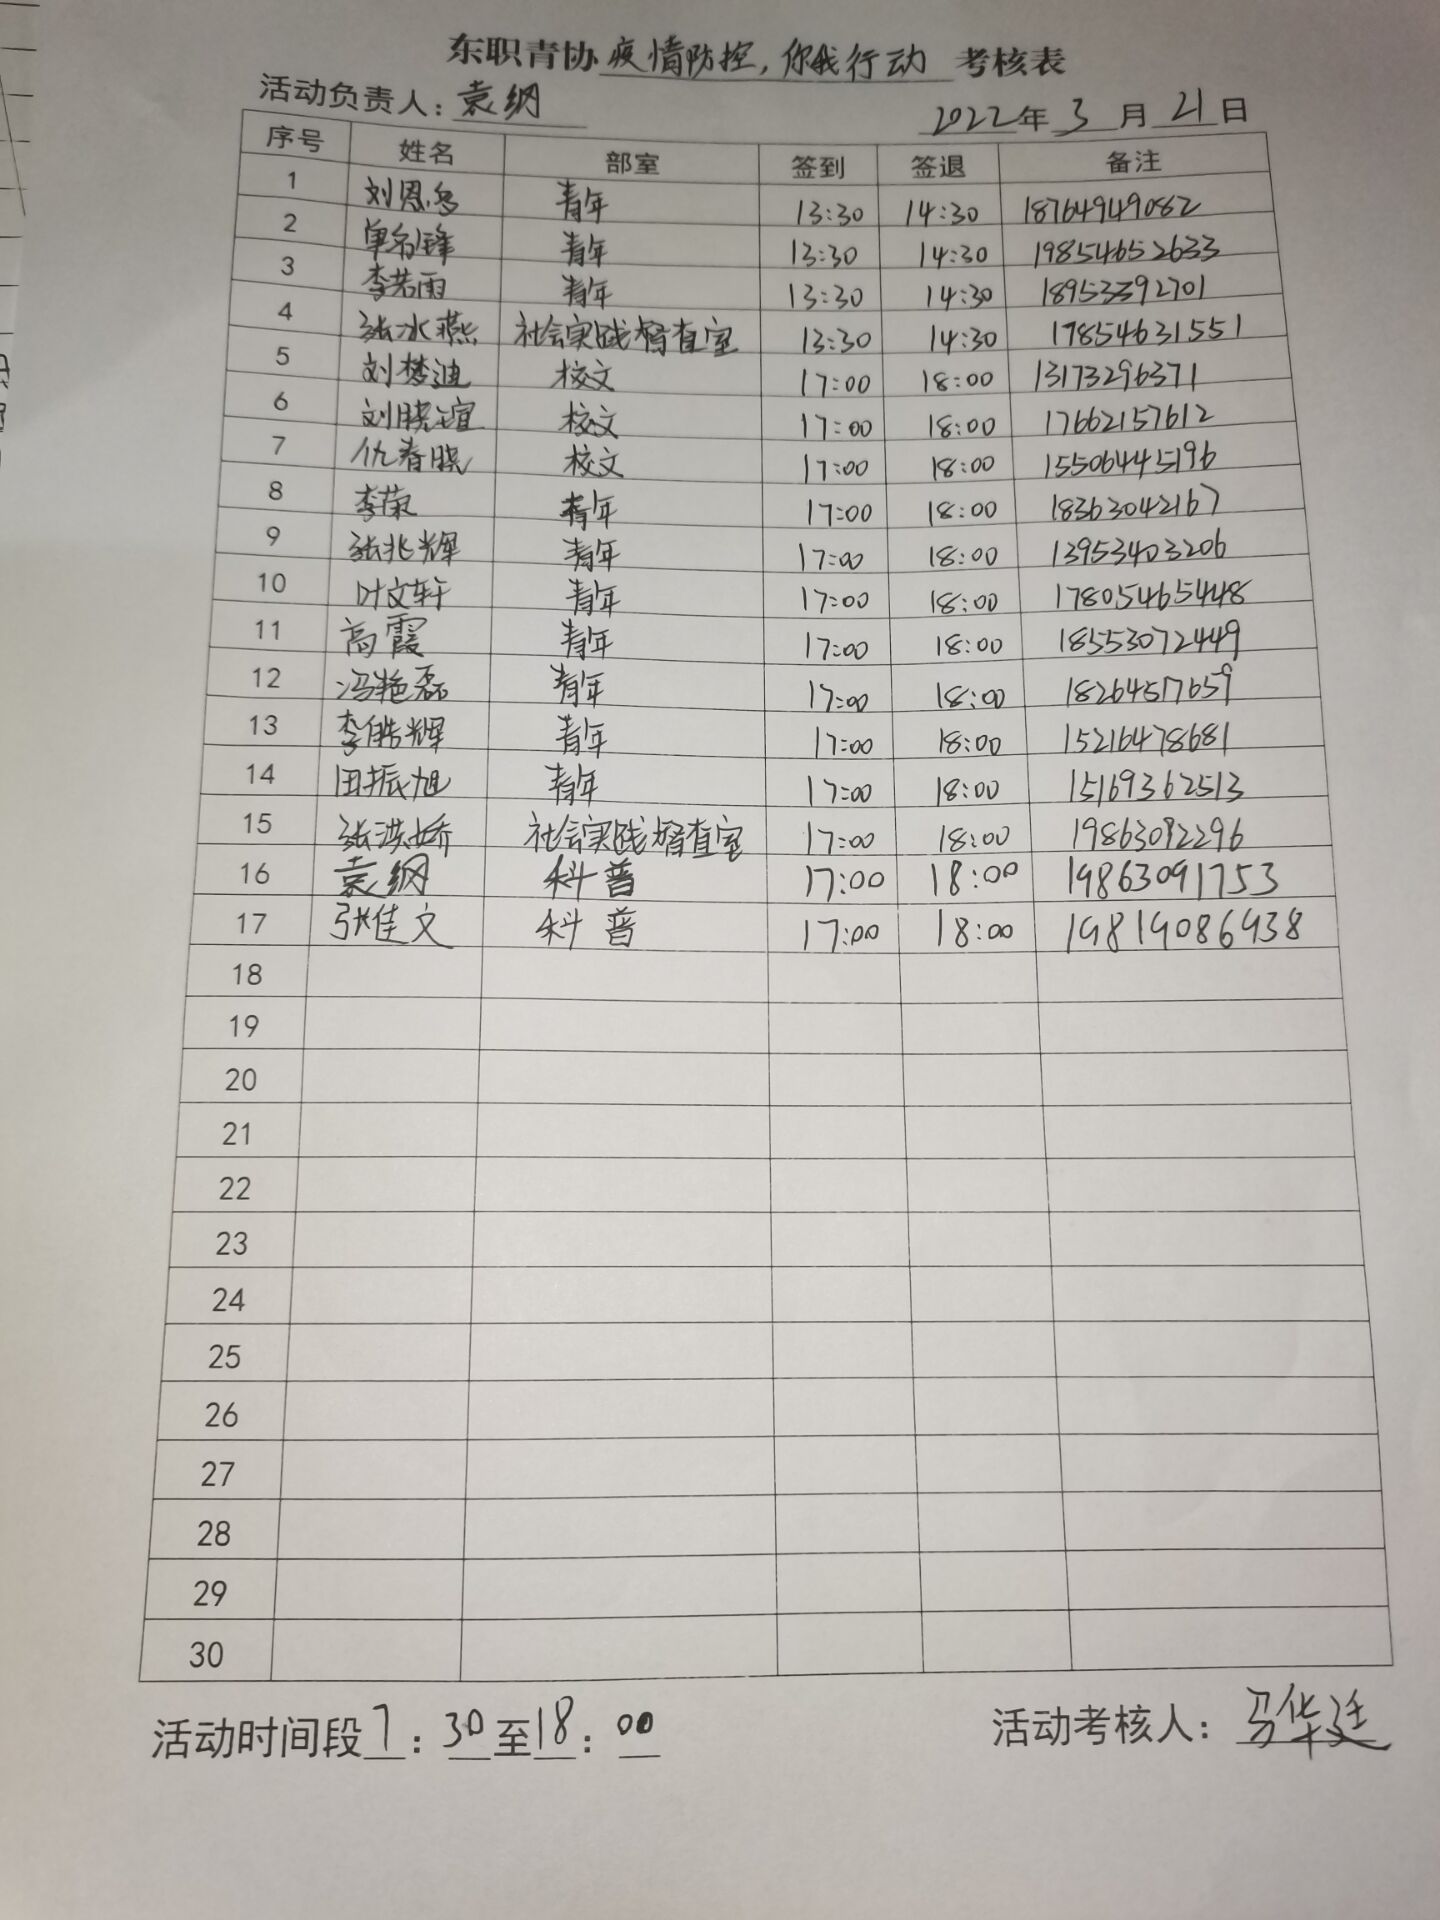 东职青协 疫情防控，你我行动 考核表
活动负责人：袁纲
2022年 3 月 21 日
序号 姓名 部室 签到 签退 备注
1 刘恩多 青年 13:30 14:30 18764949082
2 单名锋 青年 13:30 14:30 19854652633
3 李若雨 青年 13:30 14:30 18953392701
4 张冰燕 社会实践督查室 13:30 14:30 17854631551
5 刘梦迪 校文 17:00 18:00 13173296371
6 刘晓谊 校文 17:00 18:00 17662157612
7 仇春晓 校文 17:00 18:00 15506445196
8 李荣 青年 17:00 18:00 18363042167
9 张兆辉 青年 17:00 18:00 13953403206
10 叶文轩 青年 17:00 18:00 17805465448
11 高霞 青年 17:00 18:00 18553072449
12 冯艳磊 青年 17:00 18:00 18264517659
13 李皓辉 青年 17:00 18:00 15216478681
14 田振旭 青年 17:00 18:00 15169362513
15 张洪娇 社会实践督查室 17:00 18:00 19863092296
16 袁纲 科普 17:00 18:00 19863091753
17 张佳文 科普 17:00 18:00 19819086938
18
19
20
21
22
23
24
25
26
27
28
29
30
活动时间段 7：30至18：00
活动考核人：马华廷